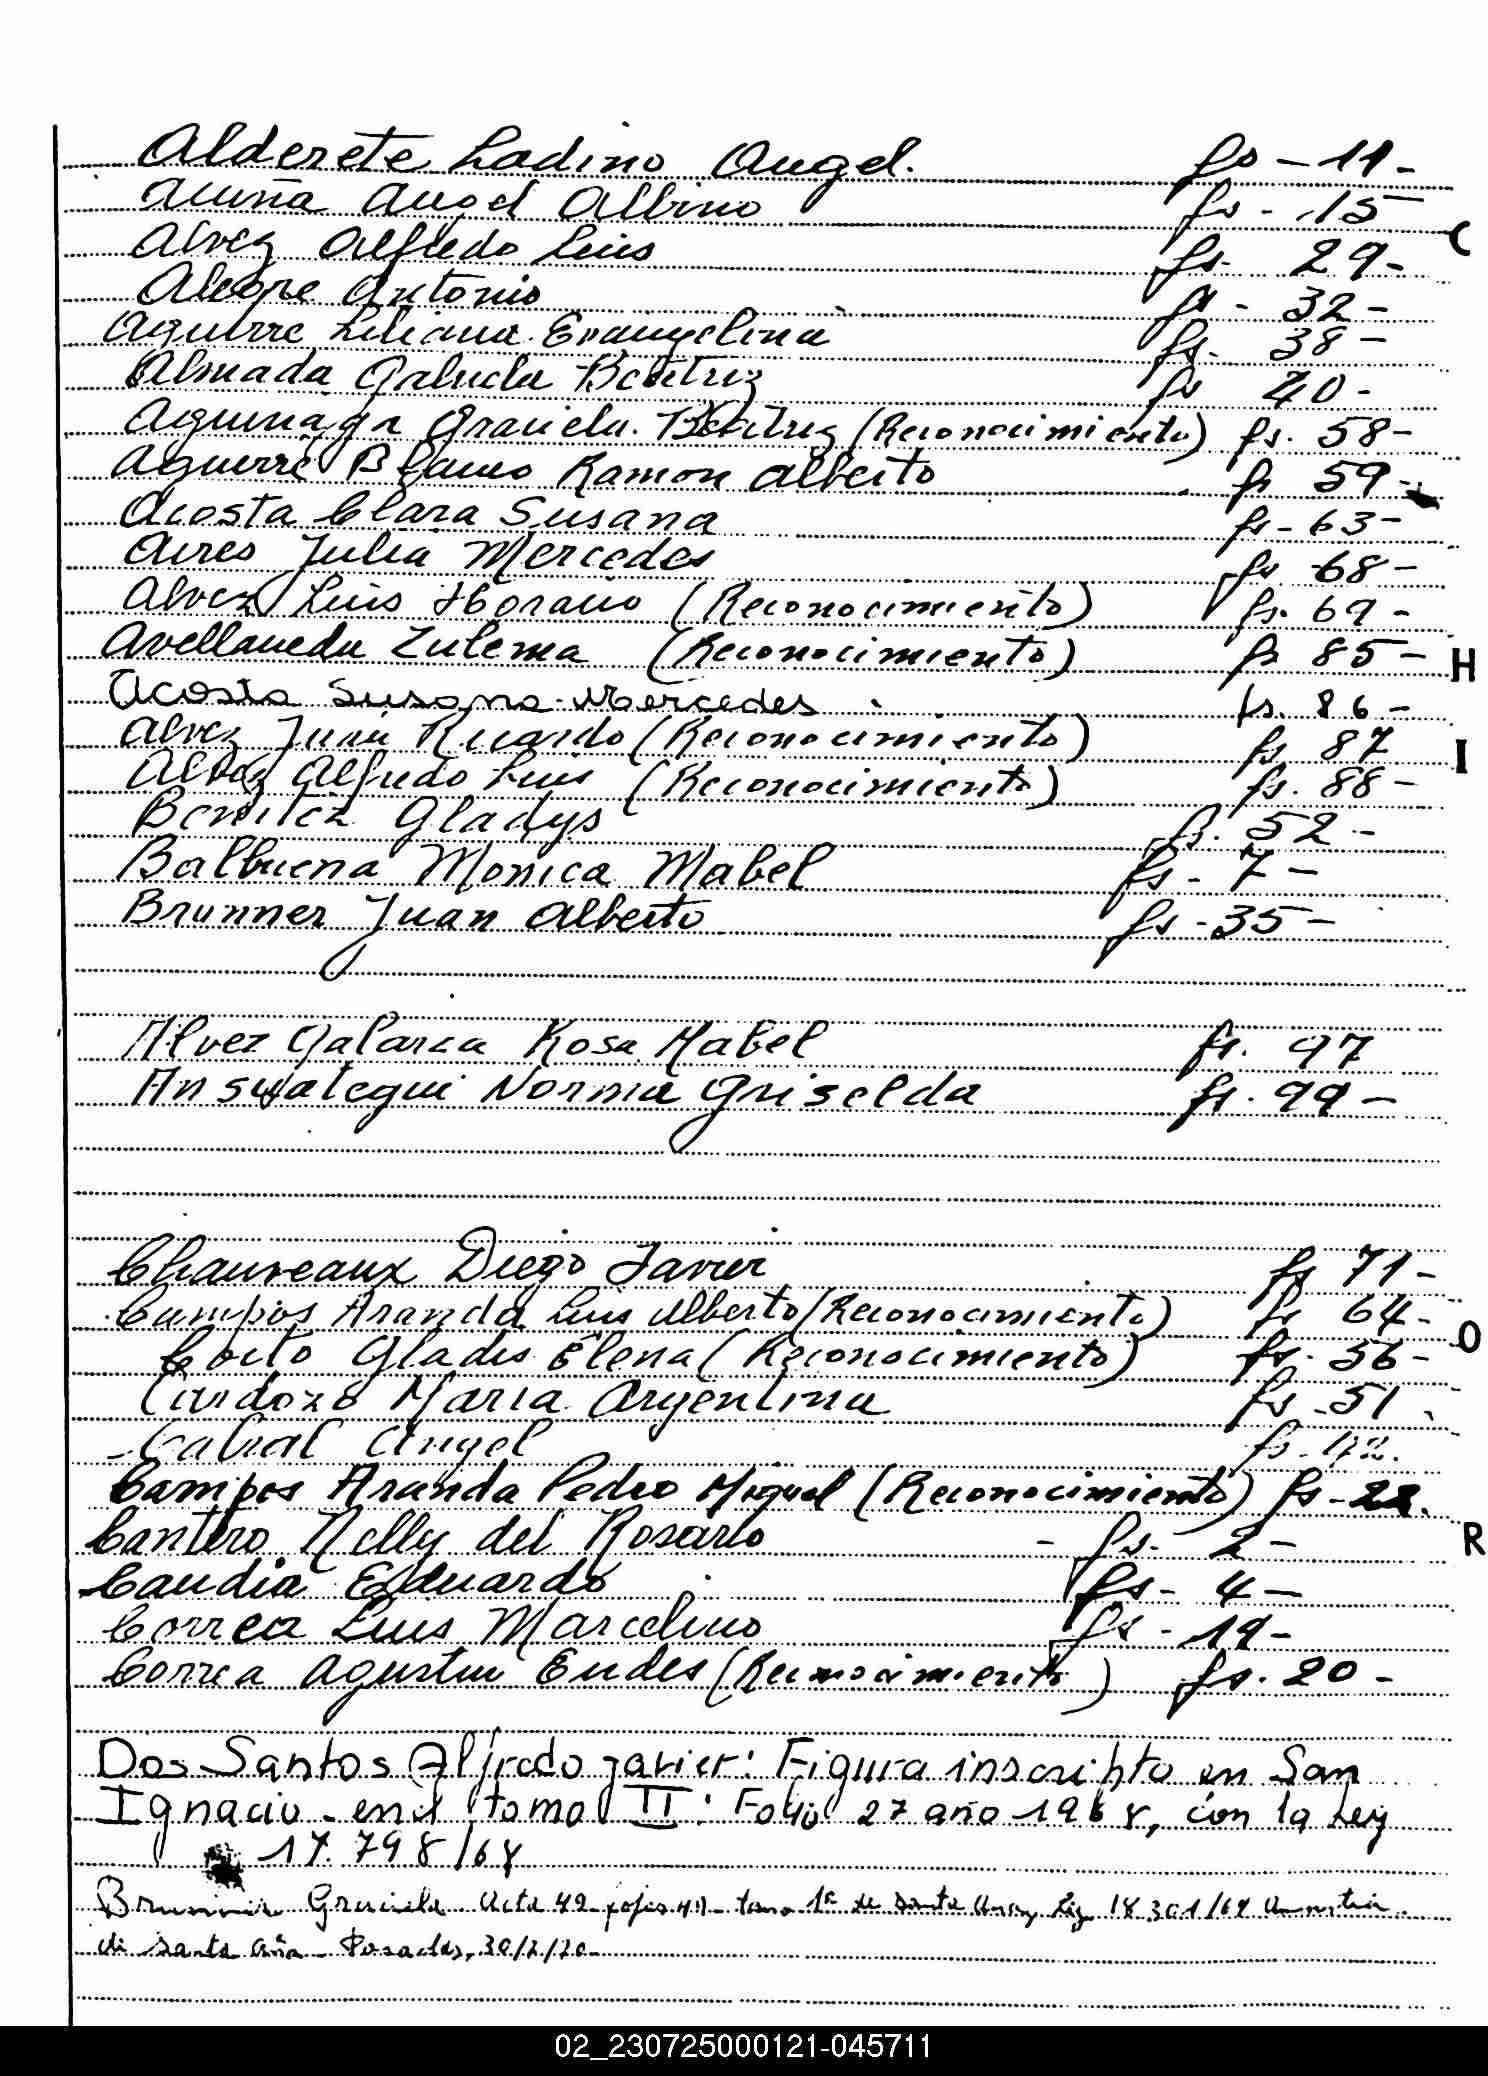 Alderete Ladino Angel. fs - 11 -
Acuña Angel Albino fs - 15 -
Alvez Alfredo Luis fs. 29 -
C
Alegre Antonio fs - 32 -
Aguirre Liliana Evangelina fs. 38 -
Almada Graciela Beatriz fs 40 -
Aguinaga Graciela Beatriz (Reconocimiento) fs. 58 -
Aguirre Ramon Alberto fs 59 -
Acosta Clara Susana fs - 63 -
Aires Julia Mercedes fs 68 -
Alvez Luis Horacio (Reconocimiento) fs. 69 -
Avellaneda Zulema (Reconocimiento) fs 85 -
H
Acosta Susana Mercedes fs. 86 -
Alvez Juan Ricardo (Reconocimiento) fs 87
I
Alvez Alfredo Luis (Reconocimiento) fs. 88 -
Benitez Gladys fs. 52 -
Balbuena Monica Mabel fs - 7 -
Brunner Juan Alberto fs - 35 -
Alvez Galarza Rosa Mabel fs. 97
Ansuategui Norma Griselda fs. 99 -
Chaureaux Diego Javier fs 71 -
Campos Aranda Luis Alberto (Reconocimiento) fs 64 -
O
Gladis Elena (Reconocimiento) fs. 56 -
Cardozo Maria Argentina fs - 51
Cabral Angel fs -
Campos Aranda Pedro Miguel (Reconocimiento) fs - 22.
Cantero Nelly del Rosario - fs - 2 -
R
Caudia Eduardo fs - 4 -
Correa Luis Marcelino fs - 19 -
Correa Agustin Eudes (Reconocimiento) fs. 20 -
Dos Santos Alfredo Javier: Figura inscripto en San
Ignacio - en el tomo II: Folio 27 año 1968, con la Ley
17.798/68
Graciela Acta 42 - tomo 1º de Santa Ana, Ley 18.301/69
de Santa Ana - Posadas, 30/
02_230725000121-045711